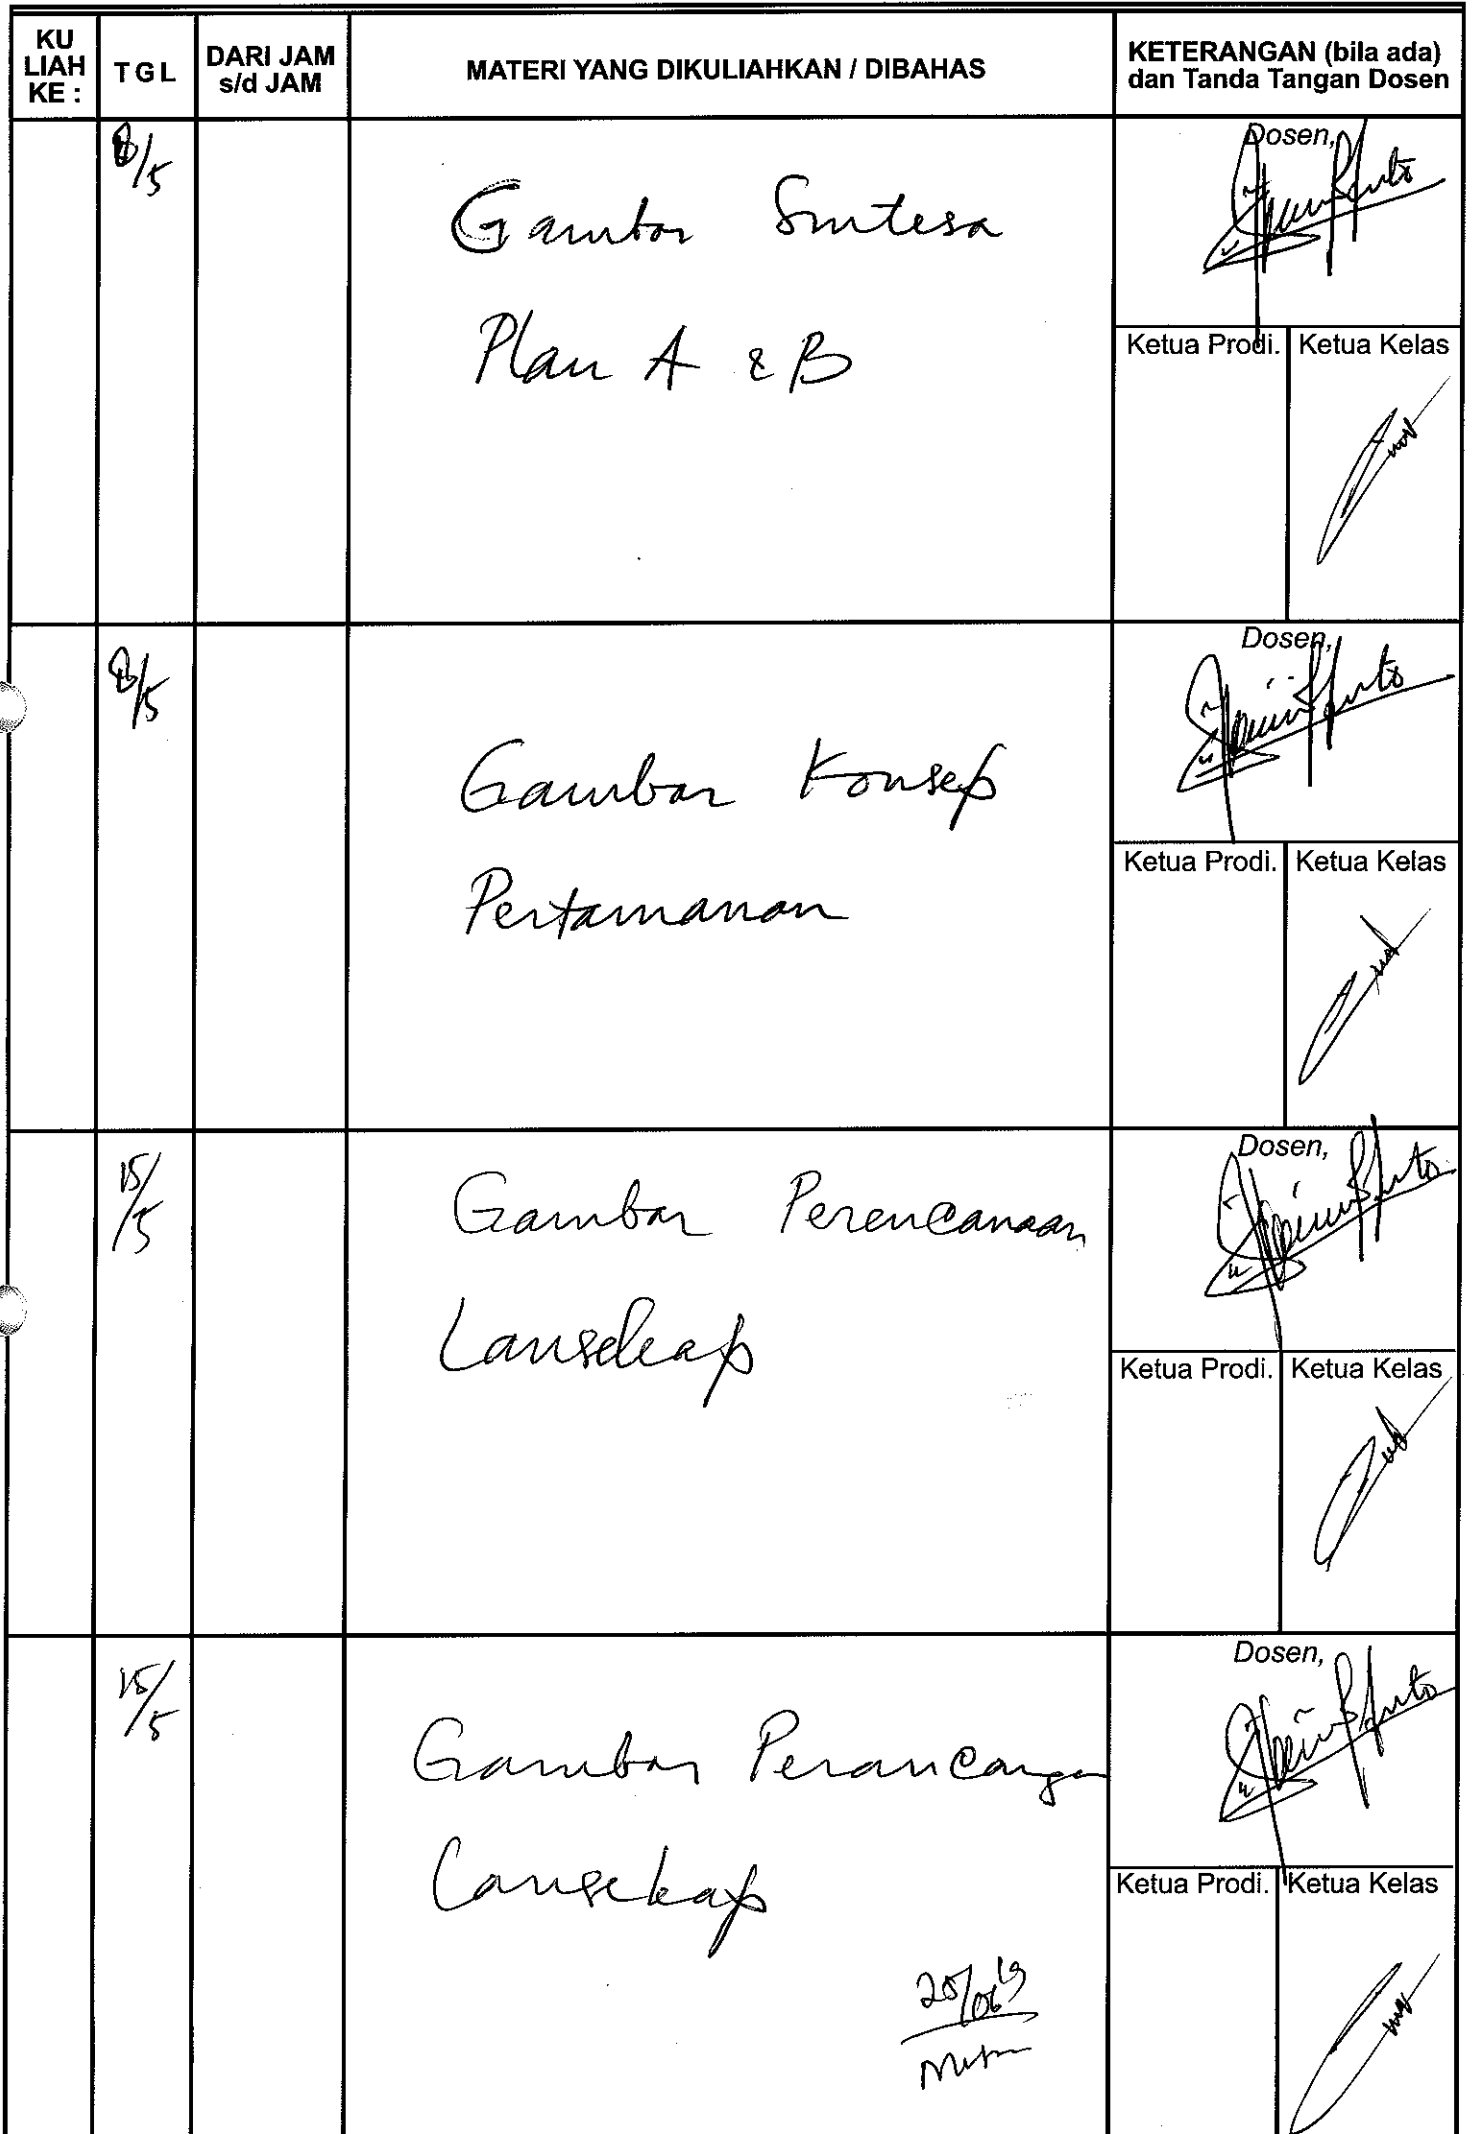 KU LIAH KE :
TGL
DARI JAM s/d JAM
MATERI YANG DIKULIAHKAN / DIBAHAS
KETERANGAN (bila ada)
dan Tanda Tangan Dosen
8/5
Gambar Sintesa
Plan A & B
Dosen,
Ketua Prodi.
Ketua Kelas
8/5
Gambar Konsep
Pertamanan
Dosen,
Ketua Prodi.
Ketua Kelas
15/5
Gambar Perencanaan
Lansekap
Dosen,
Ketua Prodi.
Ketua Kelas
15/5
Gambar Perancangan
Lansekap
Dosen,
Ketua Prodi.
Ketua Kelas